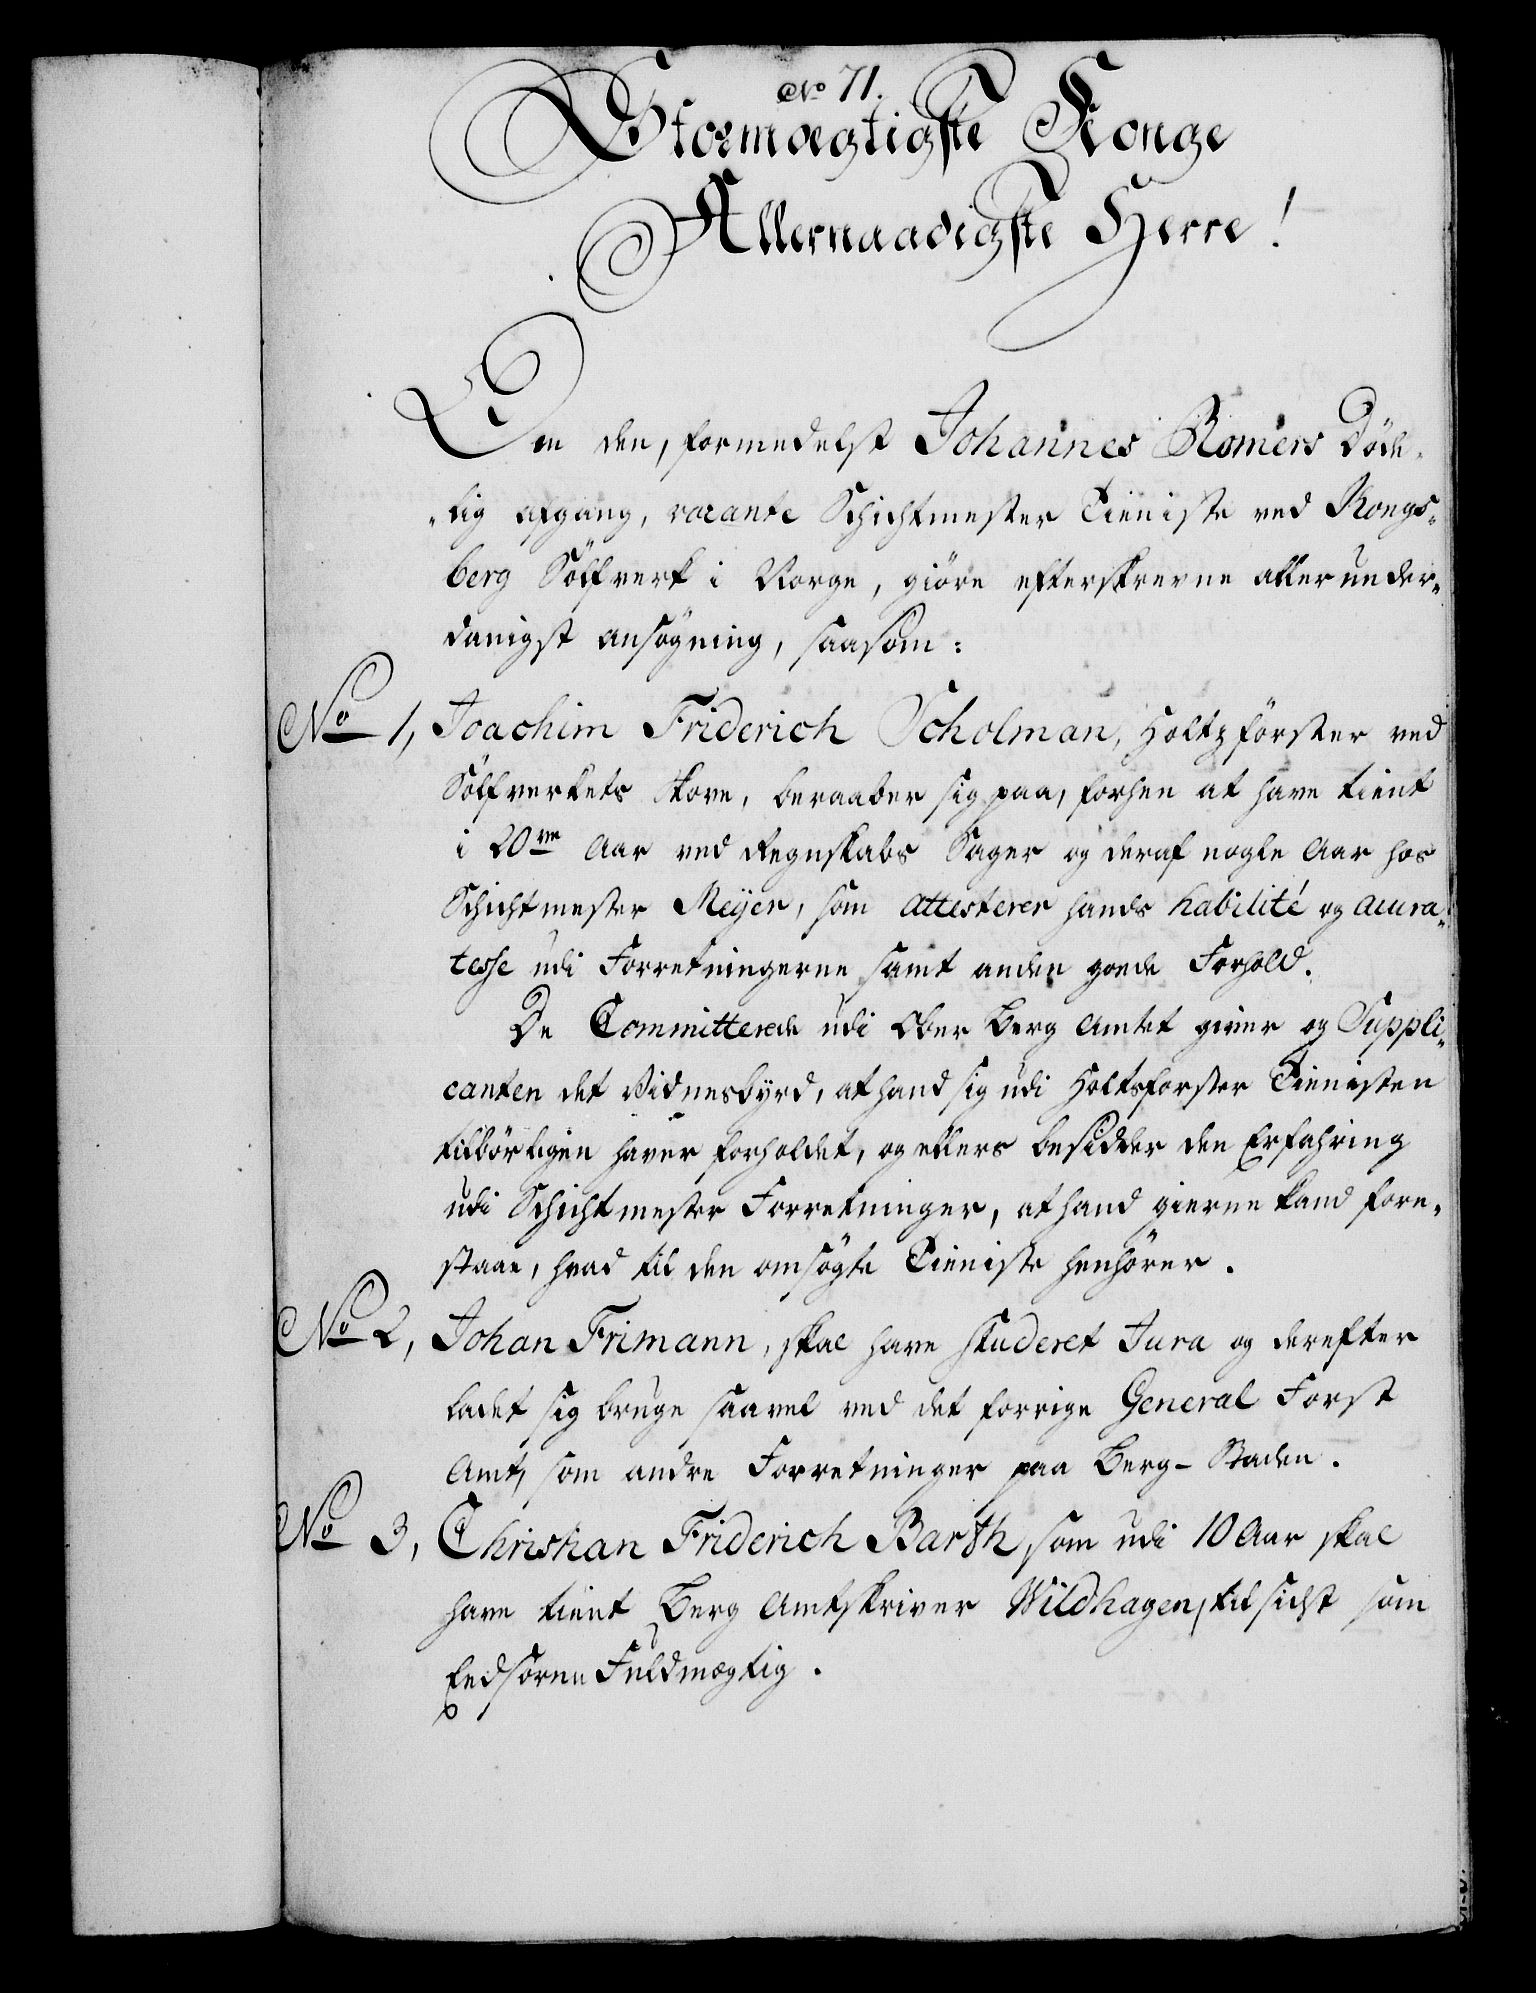 No 71.
Stormægtigste Konge
Allernaadigste Herre!
Om den, formedelst Johannes Romers Döde-
-lig afgang, vacante Schichtmester Tieniste ved Kongs-
berg Sölfverk i Norge, giöre efterskrevne allerunder-
danigst ansögning, saasom:
No 1, Joachim Friderich Scholman, Holtzförster ved
Sölfverkets Skove, beraaber sig paa, forhen at have tient
i 20ve Aar ved Regnskabs Sager og deraf nogle Aar hos
Schichtmester Meyer, som attesterer hands habilité og accura-
tesse udi Forretningerne samt anden goede Forhold.
De Committerede udi Ober Berg Amtet giver og Suppli-
canten det Vidnesbyrd, at hand sig udi Holtsforster Tienisten
tilbörligen haver forholdet, og ellers besidder den Erfahring
udi Schichtmester Forretninger, at hand gierne kand fore-
staae, hvad til den omsögte Tieniste henhörer.
No 2, Johan Frimann, skal have studeret Jura og derefter
ladet sig bruge saavel ved det forrige General Forst
Amt, som andre Forretninger paa Berg-Staden.
No 3, Christian Friderich Barth, som udi 10 Aar skal
have tient Berg Amtskriver Wildhagen, til sidst som
Eedsoren Fuldmægtig.